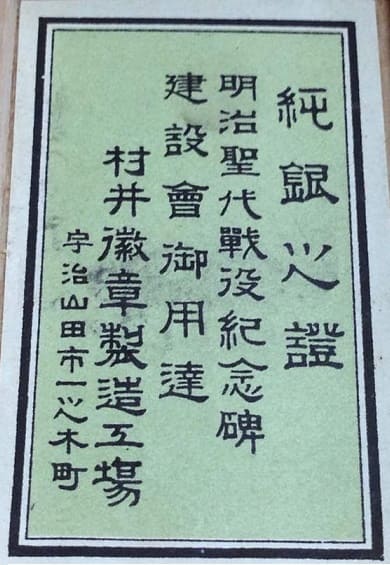 純銀之證
明治聖代戰役紀念碑
建設會御用達
村井徽章製造工場
宇治山田市一之木町